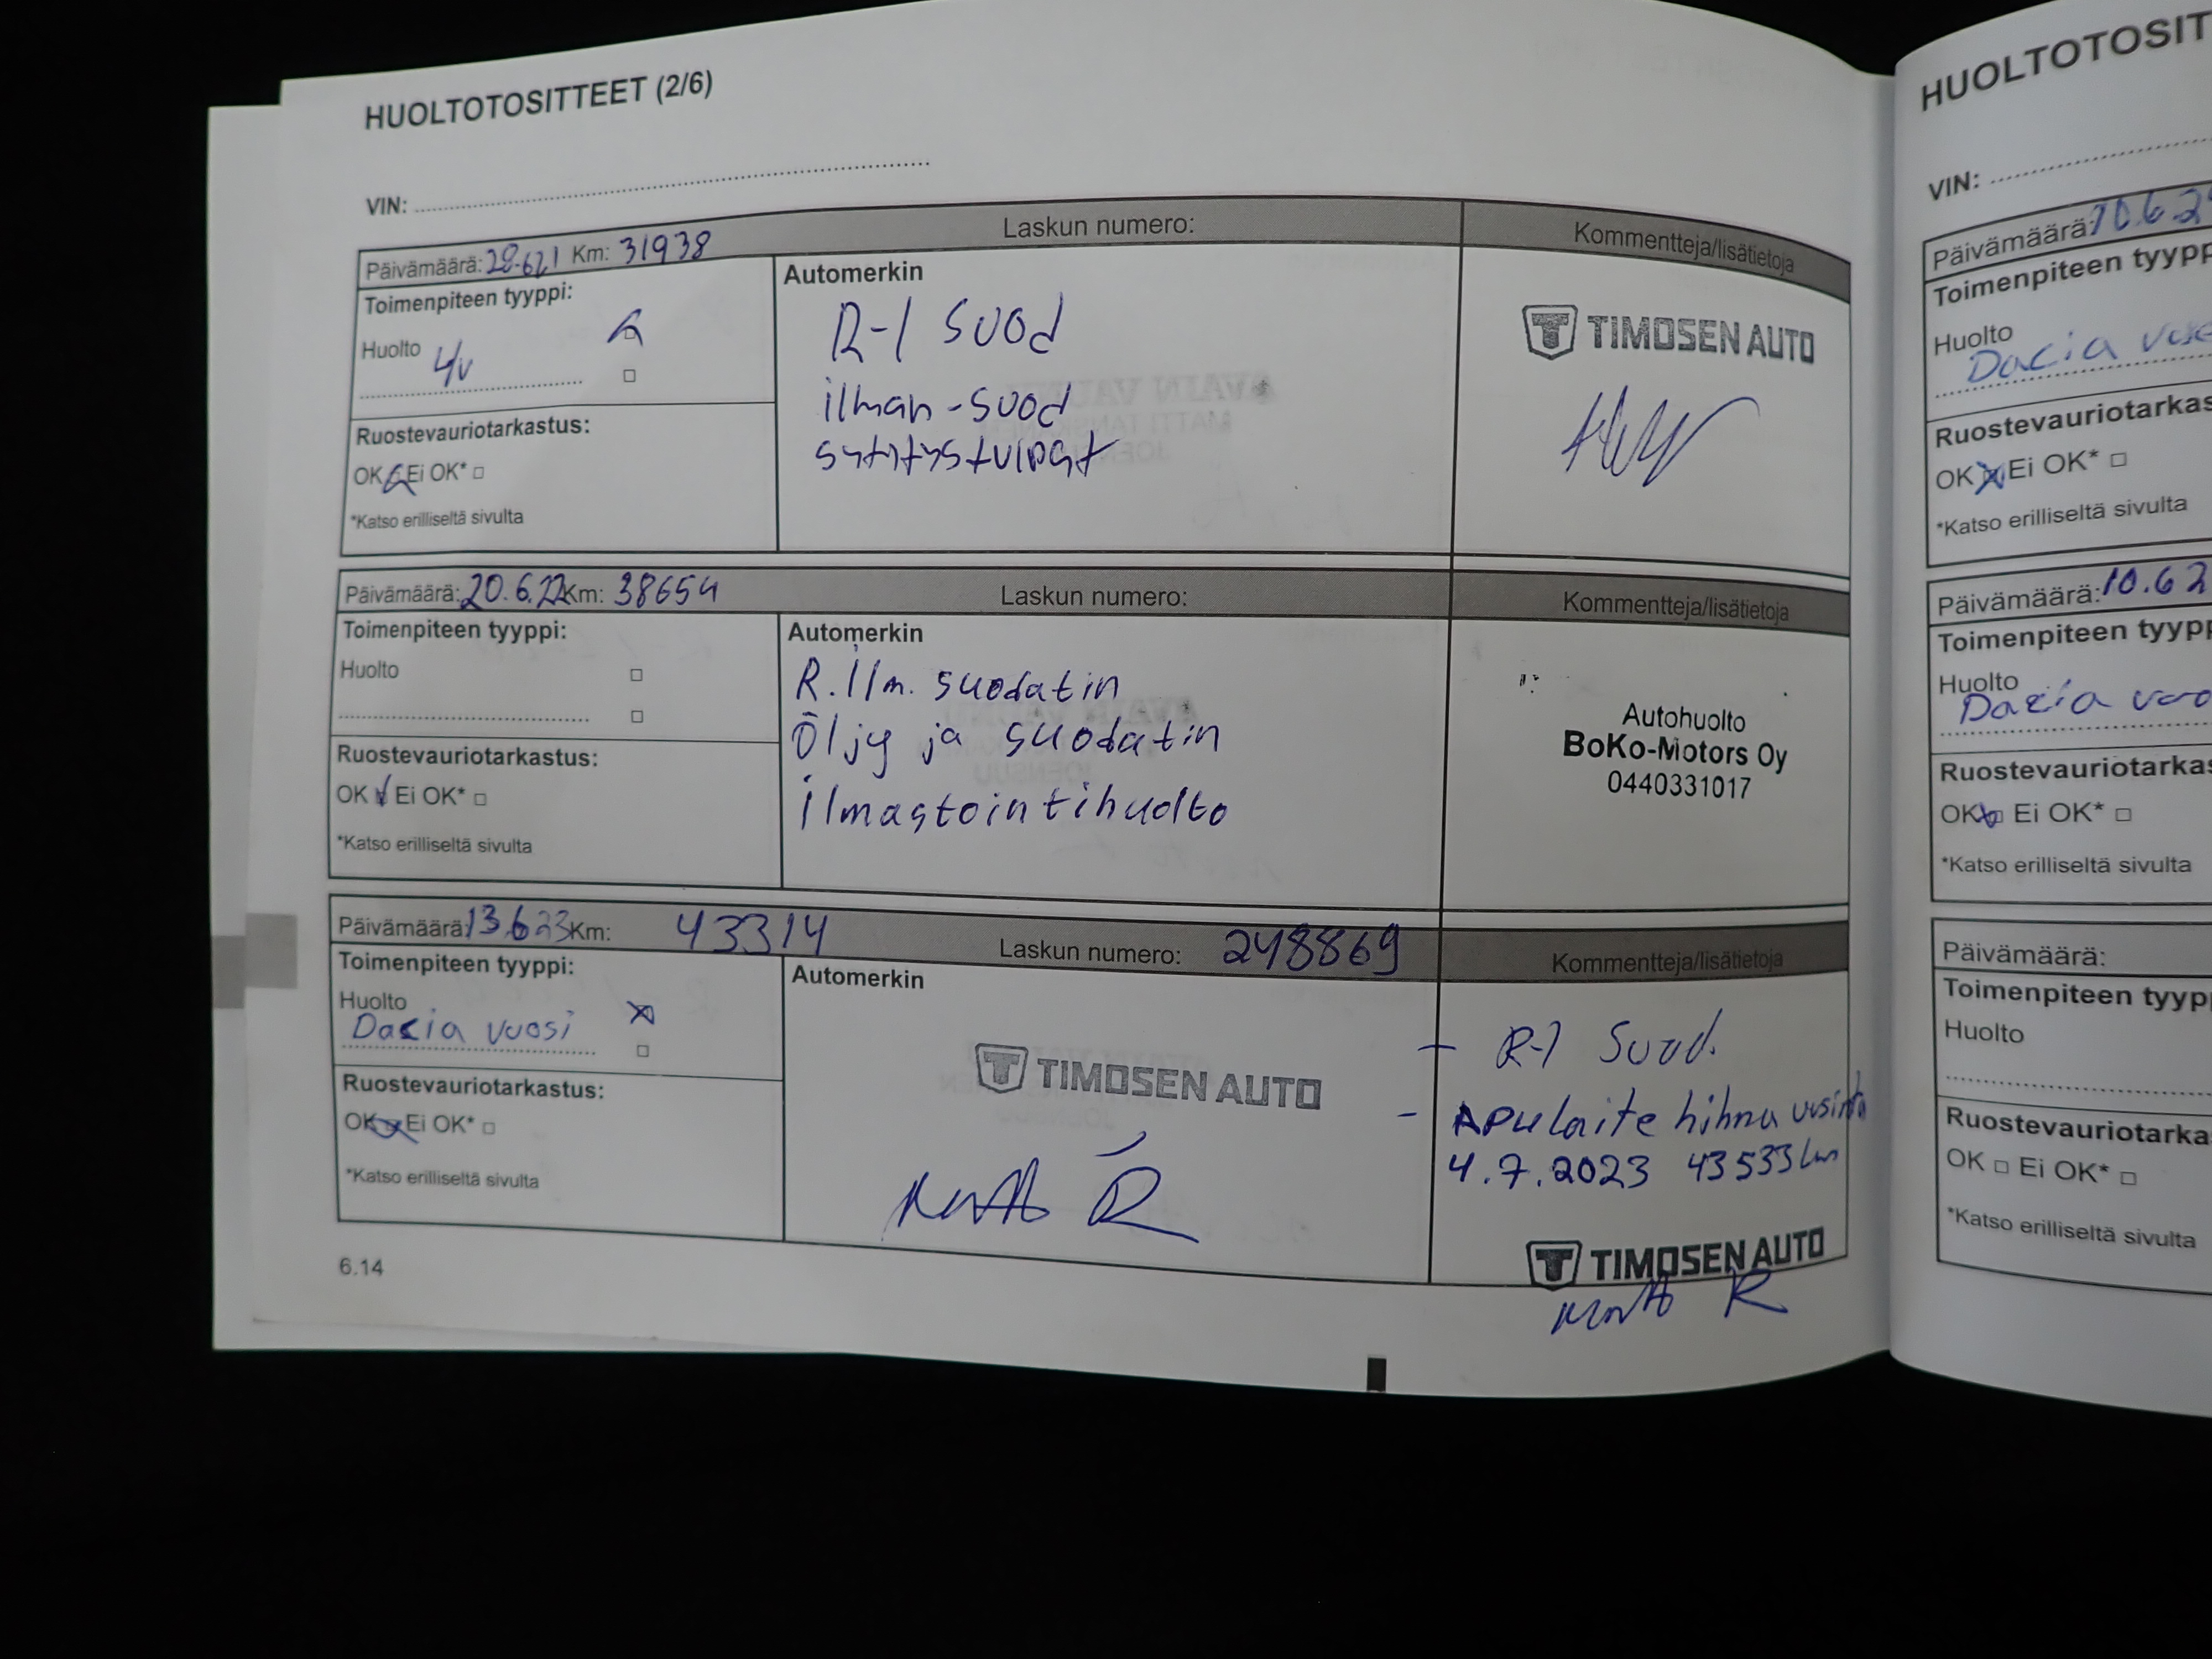 HUOLTOTOSITTEET (2/6)
VIN:
Päivämäärä: 28.6.21 Km: 31938 Laskun numero: Kommentteja/lisätietoja
Toimenpiteen tyyppi:
Huolto 4v
Ruostevauriotarkastus:
OK Ei OK*
*Katso erilliseltä sivulta
Automerkin
R-1 suod
ilman-suod
sytytystulpat
TIMOSEN AUTO
Päivämäärä: 20.6.22 Km: 38654 Laskun numero: Kommentteja/lisätietoja
Toimenpiteen tyyppi:
Huolto
Ruostevauriotarkastus:
OK Ei OK*
*Katso erilliseltä sivulta
Automerkin
R.ilm. suodatin
Öljy ja suodatin
ilmastointihuolto
Autohuolto
BoKo-Motors Oy
0440331017
Päivämäärä: 13.6.23 Km: 43314 Laskun numero: 248869 Kommentteja/lisätietoja
Toimenpiteen tyyppi:
Huolto
Dacia vuosi
Ruostevauriotarkastus:
OK Ei OK*
*Katso erilliseltä sivulta
Automerkin
TIMOSEN AUTO
- R-1 Suod.
- Apulaite hihna uusinta
4.7.2023 43533 km
TIMOSEN AUTO
6.14
HUOLTOTOSIT
VIN:
Päivämäärä: 10.6.2
Toimenpiteen tyypp
Huolto
Dacia
Ruostevauriotarkas
OK Ei OK*
*Katso erilliseltä sivulta
Päivämäärä: 10.6.2
Toimenpiteen tyypp
Huolto
Dacia
Ruostevauriotarkas
OK Ei OK*
*Katso erilliseltä sivulta
Päivämäärä:
Toimenpiteen tyypp
Huolto
Ruostevauriotarka
OK Ei OK*
*Katso erilliseltä sivulta